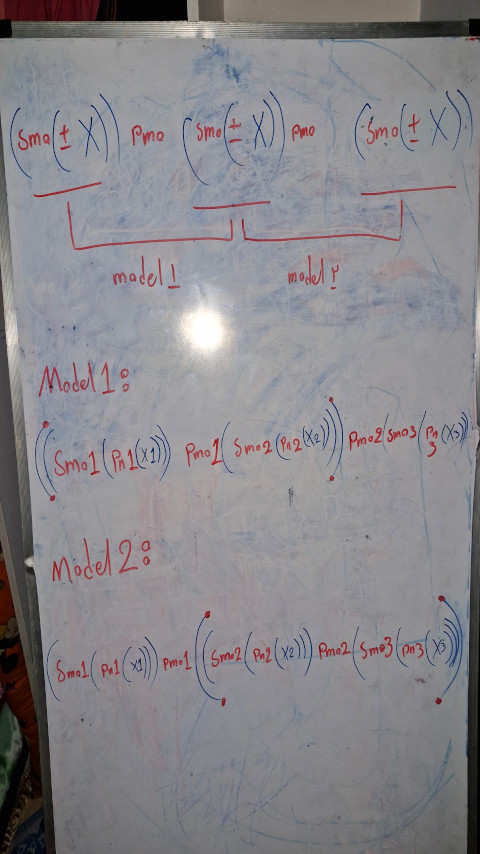 (Smo(± X)) Pmo (Smo(± X)) Pmo (Smo(± X))
model 1 model ۲
Model 1:
((Smo1(Pn1(X1)) Pmo1(Smo2(Pn2(X2))) Pmo2(Smo3(Pn3(X3))
Model 2:
(Smo1(Pn1(X1)) Pmo1((Smo2(Pn2(X2))) Pmo2(Smo3(Pn3(X3))))